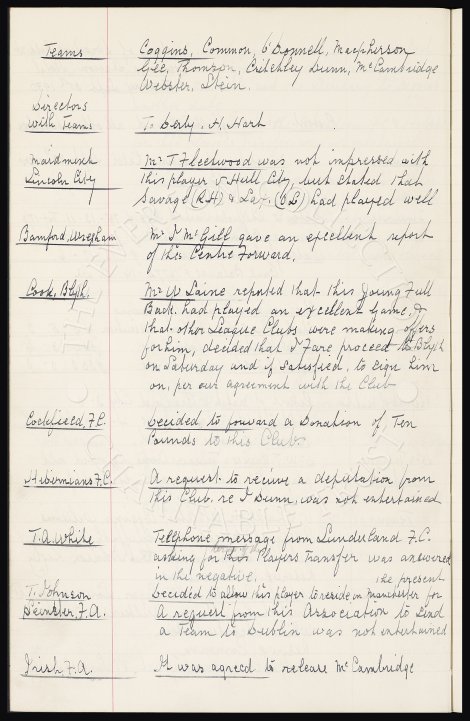 Teams Coggins, Common, O'Donnell, Macpherson
Gee, Thomson, Critchley Dunn, McCambridge
Webster, Stein.
Directors
with Teams To Derby. H. Hart
Maidment Mr T Fleetwood was not impressed with
Lincoln City this player v Hull City, but stated that
Savage (RH) & Lax. (OL) had played well
Bamford, Wrexham Mr J McGill gave an excellent report
of this Centre Forward.
Cook, Blyth. Mr W Laine reported that this young Full
Back had played an excellent game, &
that other League Clubs were making offers
for him, decided that J Fare proceed to Blyth
on Saturday and if satisfied, to sign him
on, per our agreement with the Club
Cockfield, F.C. Decided to forward a Donation of Ten
Pounds to this Club.
Hibernians F.C. A request to receive a deputation from
this Club. re J Dunn, was not entertained
T.A. White Telephone message from Sunderland F.C.
asking for this Players Transfer was answered
in the negative.
the present
T. Johnson Decided to allow this player to reside in Manchester for
Leinster F.A. A request from this Association to send
a Team to Dublin was not entertained
Irish F.A. It was agreed to release McCambridge